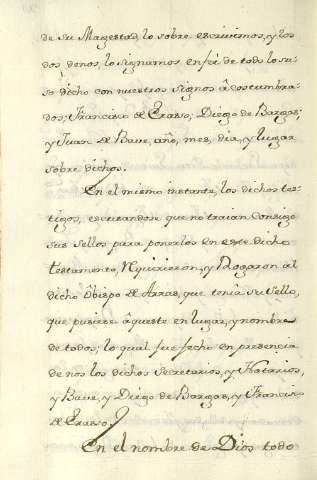 de su Magestad, lo sobre escrivimos, y los
dos de nos, lo signamos en fé de todo lo su-
so dicho con nuestros signos acostumbra-
dos; Francisco de Eraso; Diego de Bargas;
y Juan de Bave, año, mes, dia, y lugar
sobre dichos.
En el mismo instante, los dichos tes-
tigos, escusandose que no traian consigo
sus sellos para ponerlos en este dicho
testamento, Requirieron, y Rogaron al
dicho Obispo de Arras, que tenia su sello,
que pusiese aqueste en lugar, y nombre
de todos; lo qual fue fecho en presencia
de nos los dichos Secretarios, y Notarios,
y Bave, y Diego de Bargas, y Francisco
de Eraso.
En el nombre de Dios todo